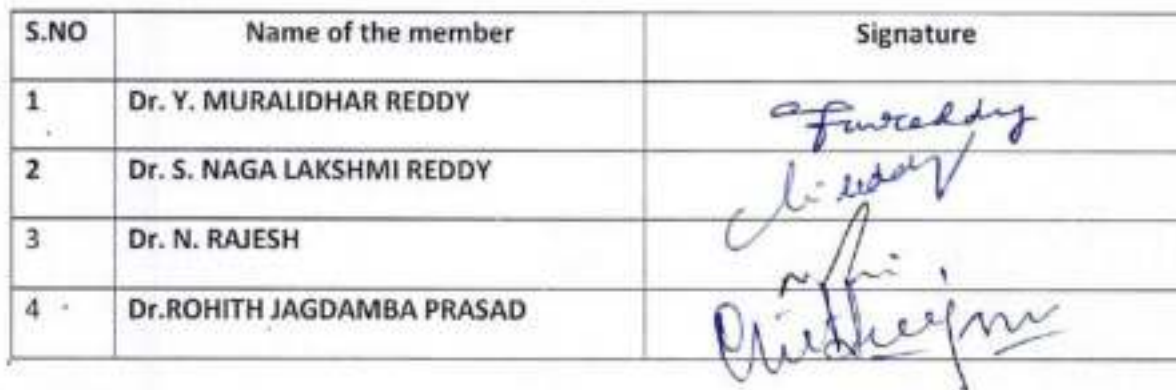 S.NO Name of the member Signature
1 Dr. Y. MURALIDHAR REDDY
2 Dr. S. NAGA LAKSHMI REDDY
3 Dr. N. RAJESH
4 Dr.ROHITH JAGDAMBA PRASAD